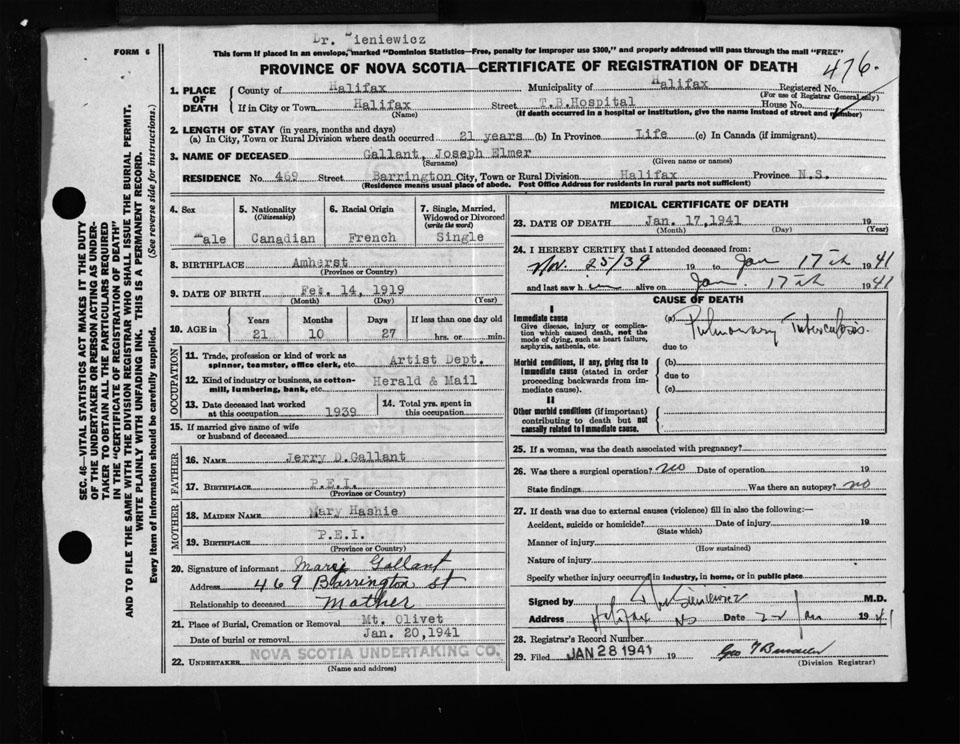 Dr. Sieniewicz
FORM 6
This form if placed in an envelope, marked "Dominion Statistics—Free, penalty for improper use $300," and properly addressed will pass through the mail "FREE"
PROVINCE OF NOVA SCOTIA—CERTIFICATE OF REGISTRATION OF DEATH
476.
1. PLACE OF DEATH
County of Halifax Municipality of Halifax Registered No.
(For use of Registrar General only)
If in City or Town Halifax Street T.B.Hospital House No.
(Name) (If death occurred in a hospital or institution, give the name instead of street and number)
2. LENGTH OF STAY (in years, months and days)
(a) In City, Town or Rural Division where death occurred 21 years (b) In Province Life (c) In Canada (if immigrant)
3. NAME OF DECEASED Gallant, Joseph Elmer
(Surname) (Given name or names)
RESIDENCE No. 469 Street Barrington City, Town or Rural Division Halifax Province N.S.
(Residence means usual place of abode. Post Office Address for residents in rural parts not sufficient)
4. Sex 5. Nationality (Citizenship) 6. Racial Origin 7. Single, Married, Widowed or Divorced (write the word)
Male Canadian French Single
8. BIRTHPLACE Amherst
(Province or Country)
9. DATE OF BIRTH Feb. 14, 1919
(Month) (Day) (Year)
10. AGE in Years Months Days If less than one day old
21 10 27 hrs. or min.
OCCUPATION
11. Trade, profession or kind of work as spinner, teamster, office clerk, etc. Artist Dept.
12. Kind of industry or business, as cotton-mill, lumbering, bank, etc. Herald & Mail
13. Date deceased last worked at this occupation 1939 14. Total yrs. spent in this occupation
15. If married give name of wife or husband of deceased
FATHER
16. NAME Jerry D. Gallant
17. BIRTHPLACE P.E.I.
(Province or Country)
MOTHER
18. MAIDEN NAME Mary Hashie
19. BIRTHPLACE P.E.I.
(Province or Country)
20. Signature of informant Gallant
Address 469 Barrington St
Relationship to deceased Mother
21. Place of Burial, Cremation or Removal Mt. Olivet
Date of burial or removal Jan. 20, 1941
22. UNDERTAKER NOVA SCOTIA UNDERTAKING CO.
(Name and address)
MEDICAL CERTIFICATE OF DEATH
23. DATE OF DEATH Jan. 17, 1941 19
(Month) (Day) (Year)
24. I HEREBY CERTIFY that I attended deceased from:
Nov. 25/39 19 to Jan 17th 1941
and last saw him alive on Jan. 17th 1941
CAUSE OF DEATH
I
Immediate cause (a) Pulmonary Tuberculosis.
Give disease, injury or complication which caused death, not the mode of dying, such as heart failure, asphyxia, asthenia, etc.
due to
Morbid conditions, if any, giving rise to immediate cause (stated in order proceeding backwards from immediate cause).
(b)
due to
(c)
II
Other morbid conditions (if important) contributing to death but not causally related to immediate cause.
25. If a woman, was the death associated with pregnancy?
26. Was there a surgical operation? no Date of operation 19
State findings Was there an autopsy? no
27. If death was due to external causes (violence) fill in also the following:—
Accident, suicide or homicide? Date of injury 19
(State which)
Manner of injury
(How sustained)
Nature of injury
Specify whether injury occurred in industry, in home, or in public place
Signed by Sieniewicz M.D.
Address Halifax NS Date 22 Jan 1941
28. Registrar's Record Number
29. Filed JAN 28 1941 19 Geo
(Division Registrar)
SEC. 46—VITAL STATISTICS ACT MAKES IT THE DUTY
OF THE UNDERTAKER OR PERSON ACTING AS UNDER-
TAKER TO OBTAIN ALL THE PARTICULARS REQUIRED
IN THE "CERTIFICATE OF REGISTRATION OF DEATH"
AND TO FILE THE SAME WITH THE DIVISION REGISTRAR WHO SHALL ISSUE THE BURIAL PERMIT.
WRITE PLAINLY WITH UNFADING INK. THIS IS A PERMANENT RECORD.
Every item of information should be carefully supplied. (See reverse side for instructions.)